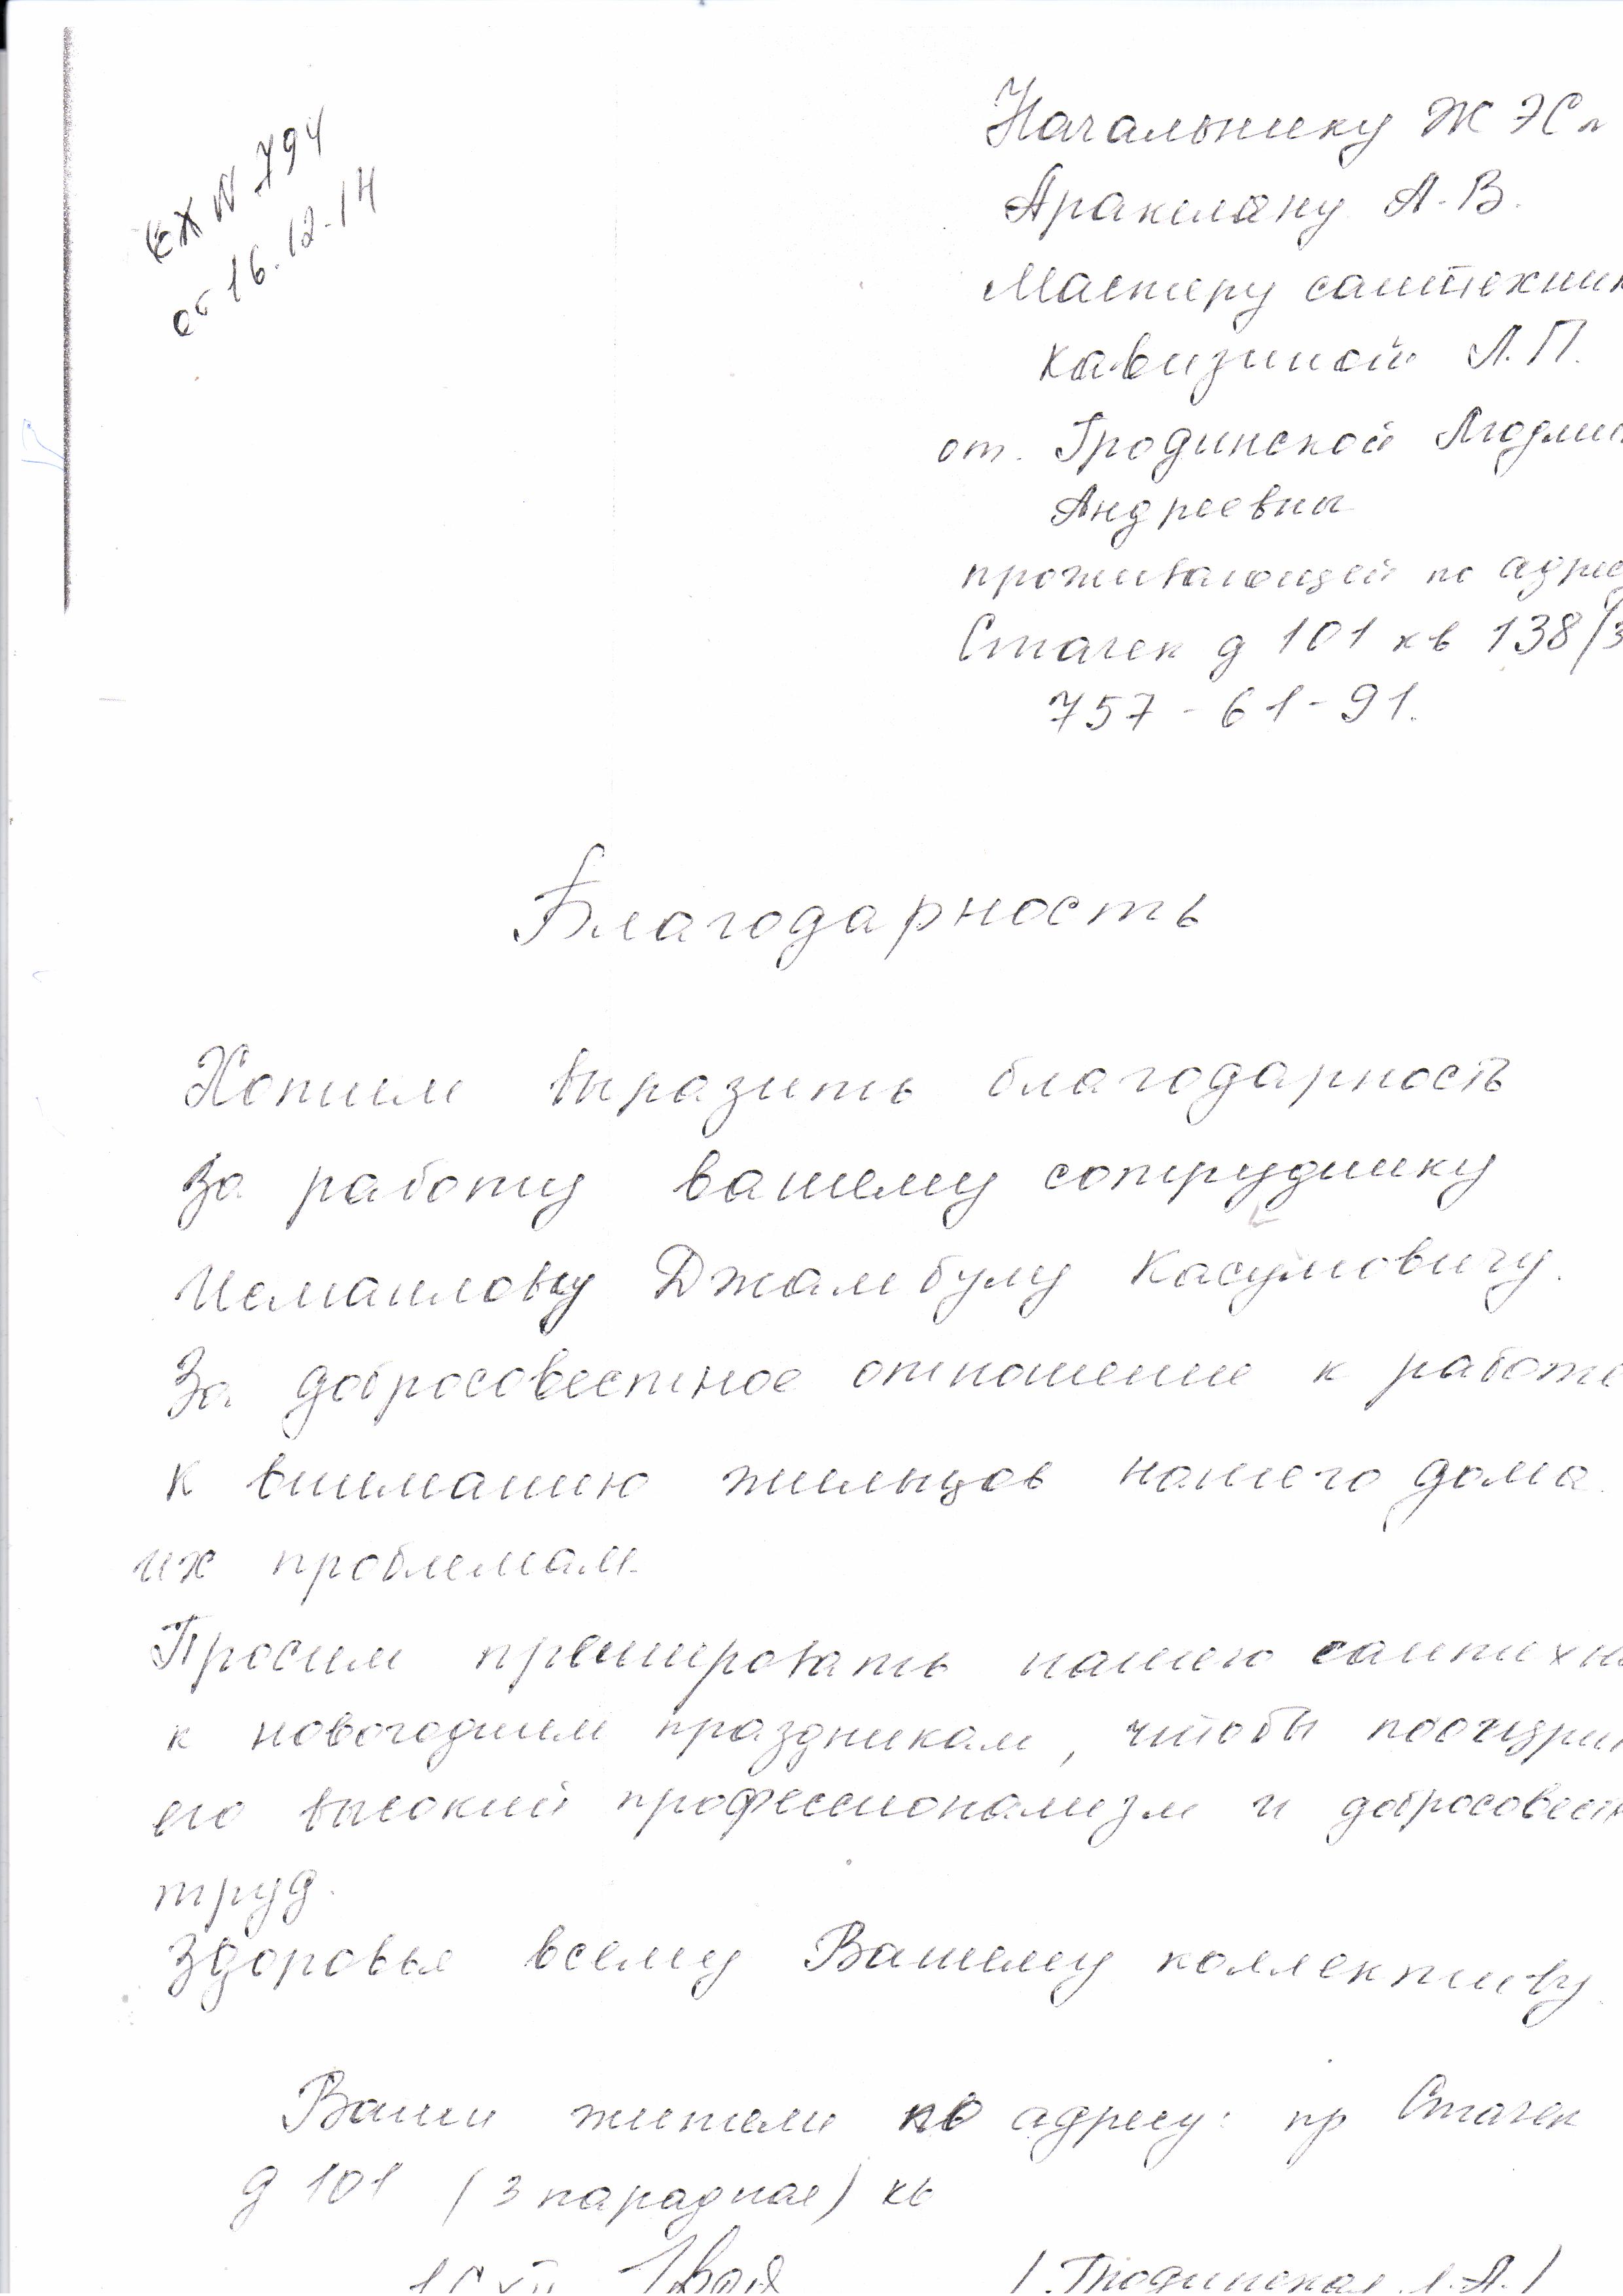 вх N 794
от 16.12.14
Начальнику ЖЭС
Аракеляну А.В.
Мастеру сантехник
Кавизиной Л.П.
от. Гродинской Людми
Андреевны
проживающей по адрес
Стачек д 101 кв 138/3
757-61-91.
Благодарность
Хотим выразить благодарность
за работу вашему сотруднику
Исмаилову Джамбулу Касумовичу.
За добросовестное отношение к работе
к вниманию жильцов нашего дома
их проблемам.
Просим премировать нашего сантехни
к новогодним праздникам, чтобы поощрит
его высокий профессионализм и добросовестн
труд.
Здоровья всему Вашему коллективу.
Ваши жители по адресу: пр Стачек
д 101 (3 парадная) кв
(Гродинская Л.А.)